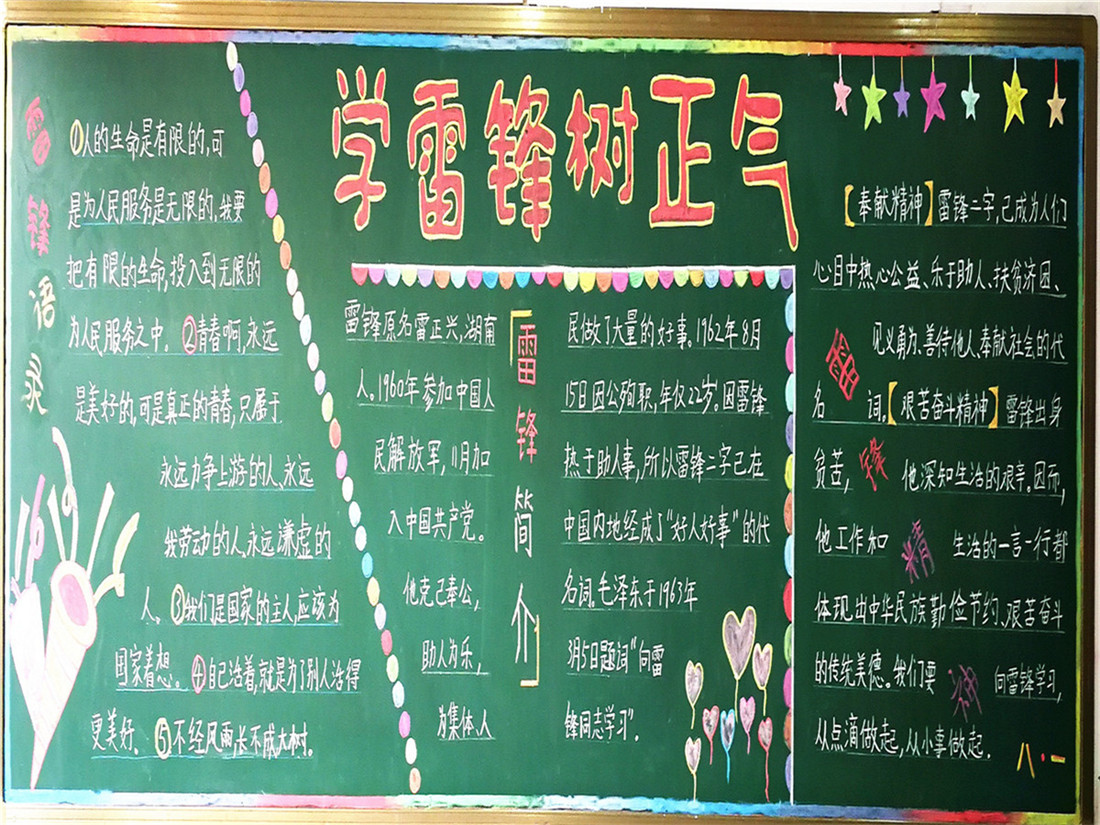 学雷锋树正气
雷锋语录
①人的生命是有限的,可
是为人民服务是无限的,我要
把有限的生命,投入到无限的
为人民服务之中。②青春啊,永远
是美好的,可是真正的青春,只属于
永远力争上游的人,永远
我劳动的人,永远谦虚的
人。③我们是国家的主人,应该为
国家着想。④自己活着,就是为了别人活得
更美好。⑤不经风雨,长不成大树。
「雷锋简介」
雷锋原名雷正兴,湖南
人。1960年参加中国人
民解放军,11月加
入中国共产党。
他克己奉公,
助人为乐,
为集体、人
民做了大量的好事。1962年8月
15日因公殉职,年仅22岁。因雷锋
热于助人事,所以雷锋二字已在
中国内地经成了"好人好事"的代
名词。毛泽东于1963年
3月5日题词"向雷
锋同志学习"。
雷锋精神
【奉献精神】雷锋二字,已成为人们
心目中热心公益、乐于助人、扶贫济困、
见义勇为、善待他人、奉献社会的代
名词。【艰苦奋斗精神】雷锋出身
贫苦,他深知生活的艰辛。因而,
他工作和生活的一言一行都
体现出中华民族勤俭节约、艰苦奋斗
的传统美德。我们要向雷锋学习,
从点滴做起,从小事做起.
八·一